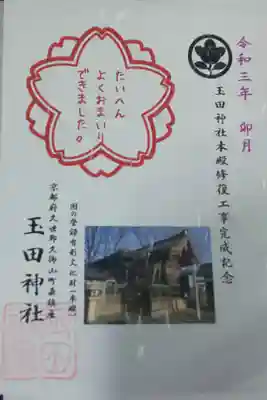 令和三年 卯月
玉田神社本殿修復工事完成記念
たいへん
よくおまいり
できました。
国の登録有形文化財(本殿)
京都府久世郡久御山町森鎮座
玉田神社